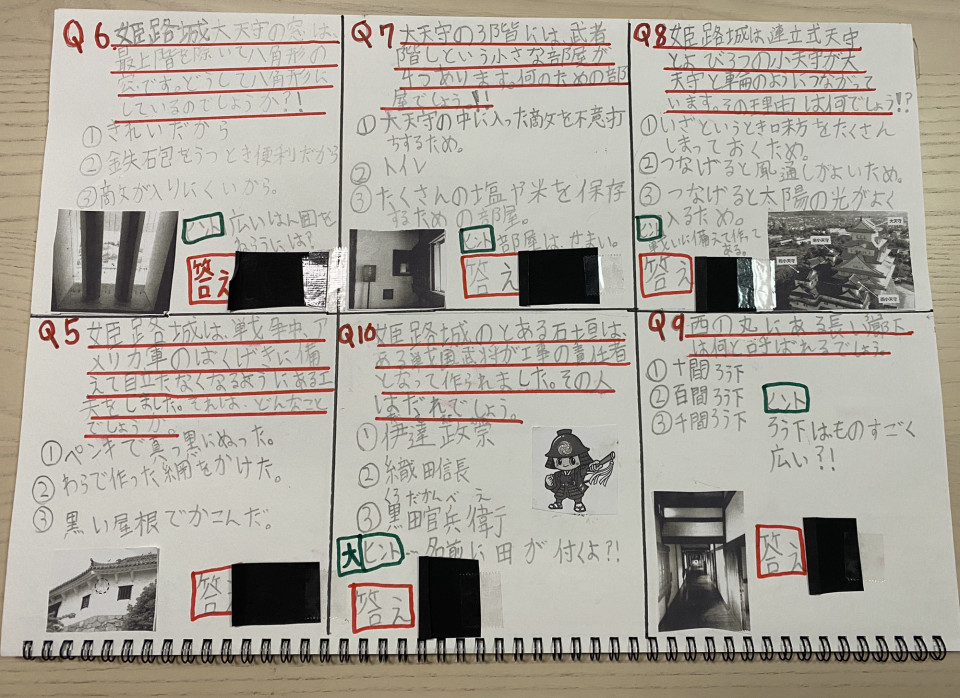 Q6 姫路城大天守の窓は、
最上階を除いて八角形の
窓です。どうして八角形に
しているのでしょうか?!
①きれいだから
②鉄石包をうつとき便利だから
③敵が入りにくいから。
ヒント 広いはん囲を
ねらうには?
答え
Q7 大天守の3階には、武者
隠しという小さな部屋が
4つあります。何のための部
屋でしょう。!!
①大天守の中に入った敵を不意打
ちするため。
②トイレ
③たくさんの塩や米を保存
するための部屋。
ヒント 部屋は、せまい。
答え
Q8 姫路城は、連立式天守
とよび3つの小天守が大
天守と輪のようにつながって
います。その理由は何でしょう!?
①いざというとき味方をたくさん
しまっておくため。
②つなげると風通しがよいため。
③つなげると太陽の光がよく
入るため。
ヒント
戦いに備えて作って
ある。
答え
大天守
東小天守
乾小天守
西小天守
Q5 姫路城は、戦争中、ア
メリカ軍のばくげきに備
えて目立たなくなるようにある工
夫をしました。それは、どんなこと
でしょうか。
①ペンキで真っ黒にぬった。
②わらで作った、網をかけた。
③黒い屋根でかこんだ。
答え
Q10 姫路城のとある石垣は、
ある戦国武将が工事の責任者
となって作られました。その人
はだれでしょう。
①伊達政宗
②織田信長
くろだかんべえ
③黒田官兵衛
大ヒント…名前に田が付くよ?!
答え
Q9 西の丸にある長い廊下
は何と呼ばれるでしょう。
①十間ろう下
②百間ろう下
③千間ろう下
ヒント
ろう下はものすごく
広い?!
答え